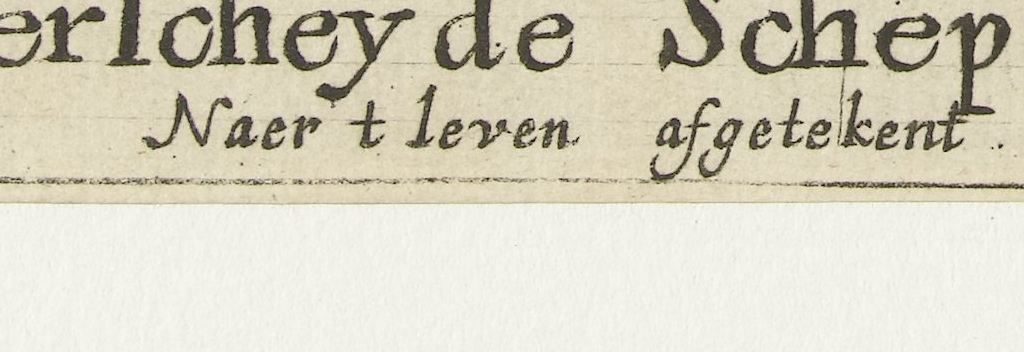 erschey de Schep
Naer t leven afgetekent .